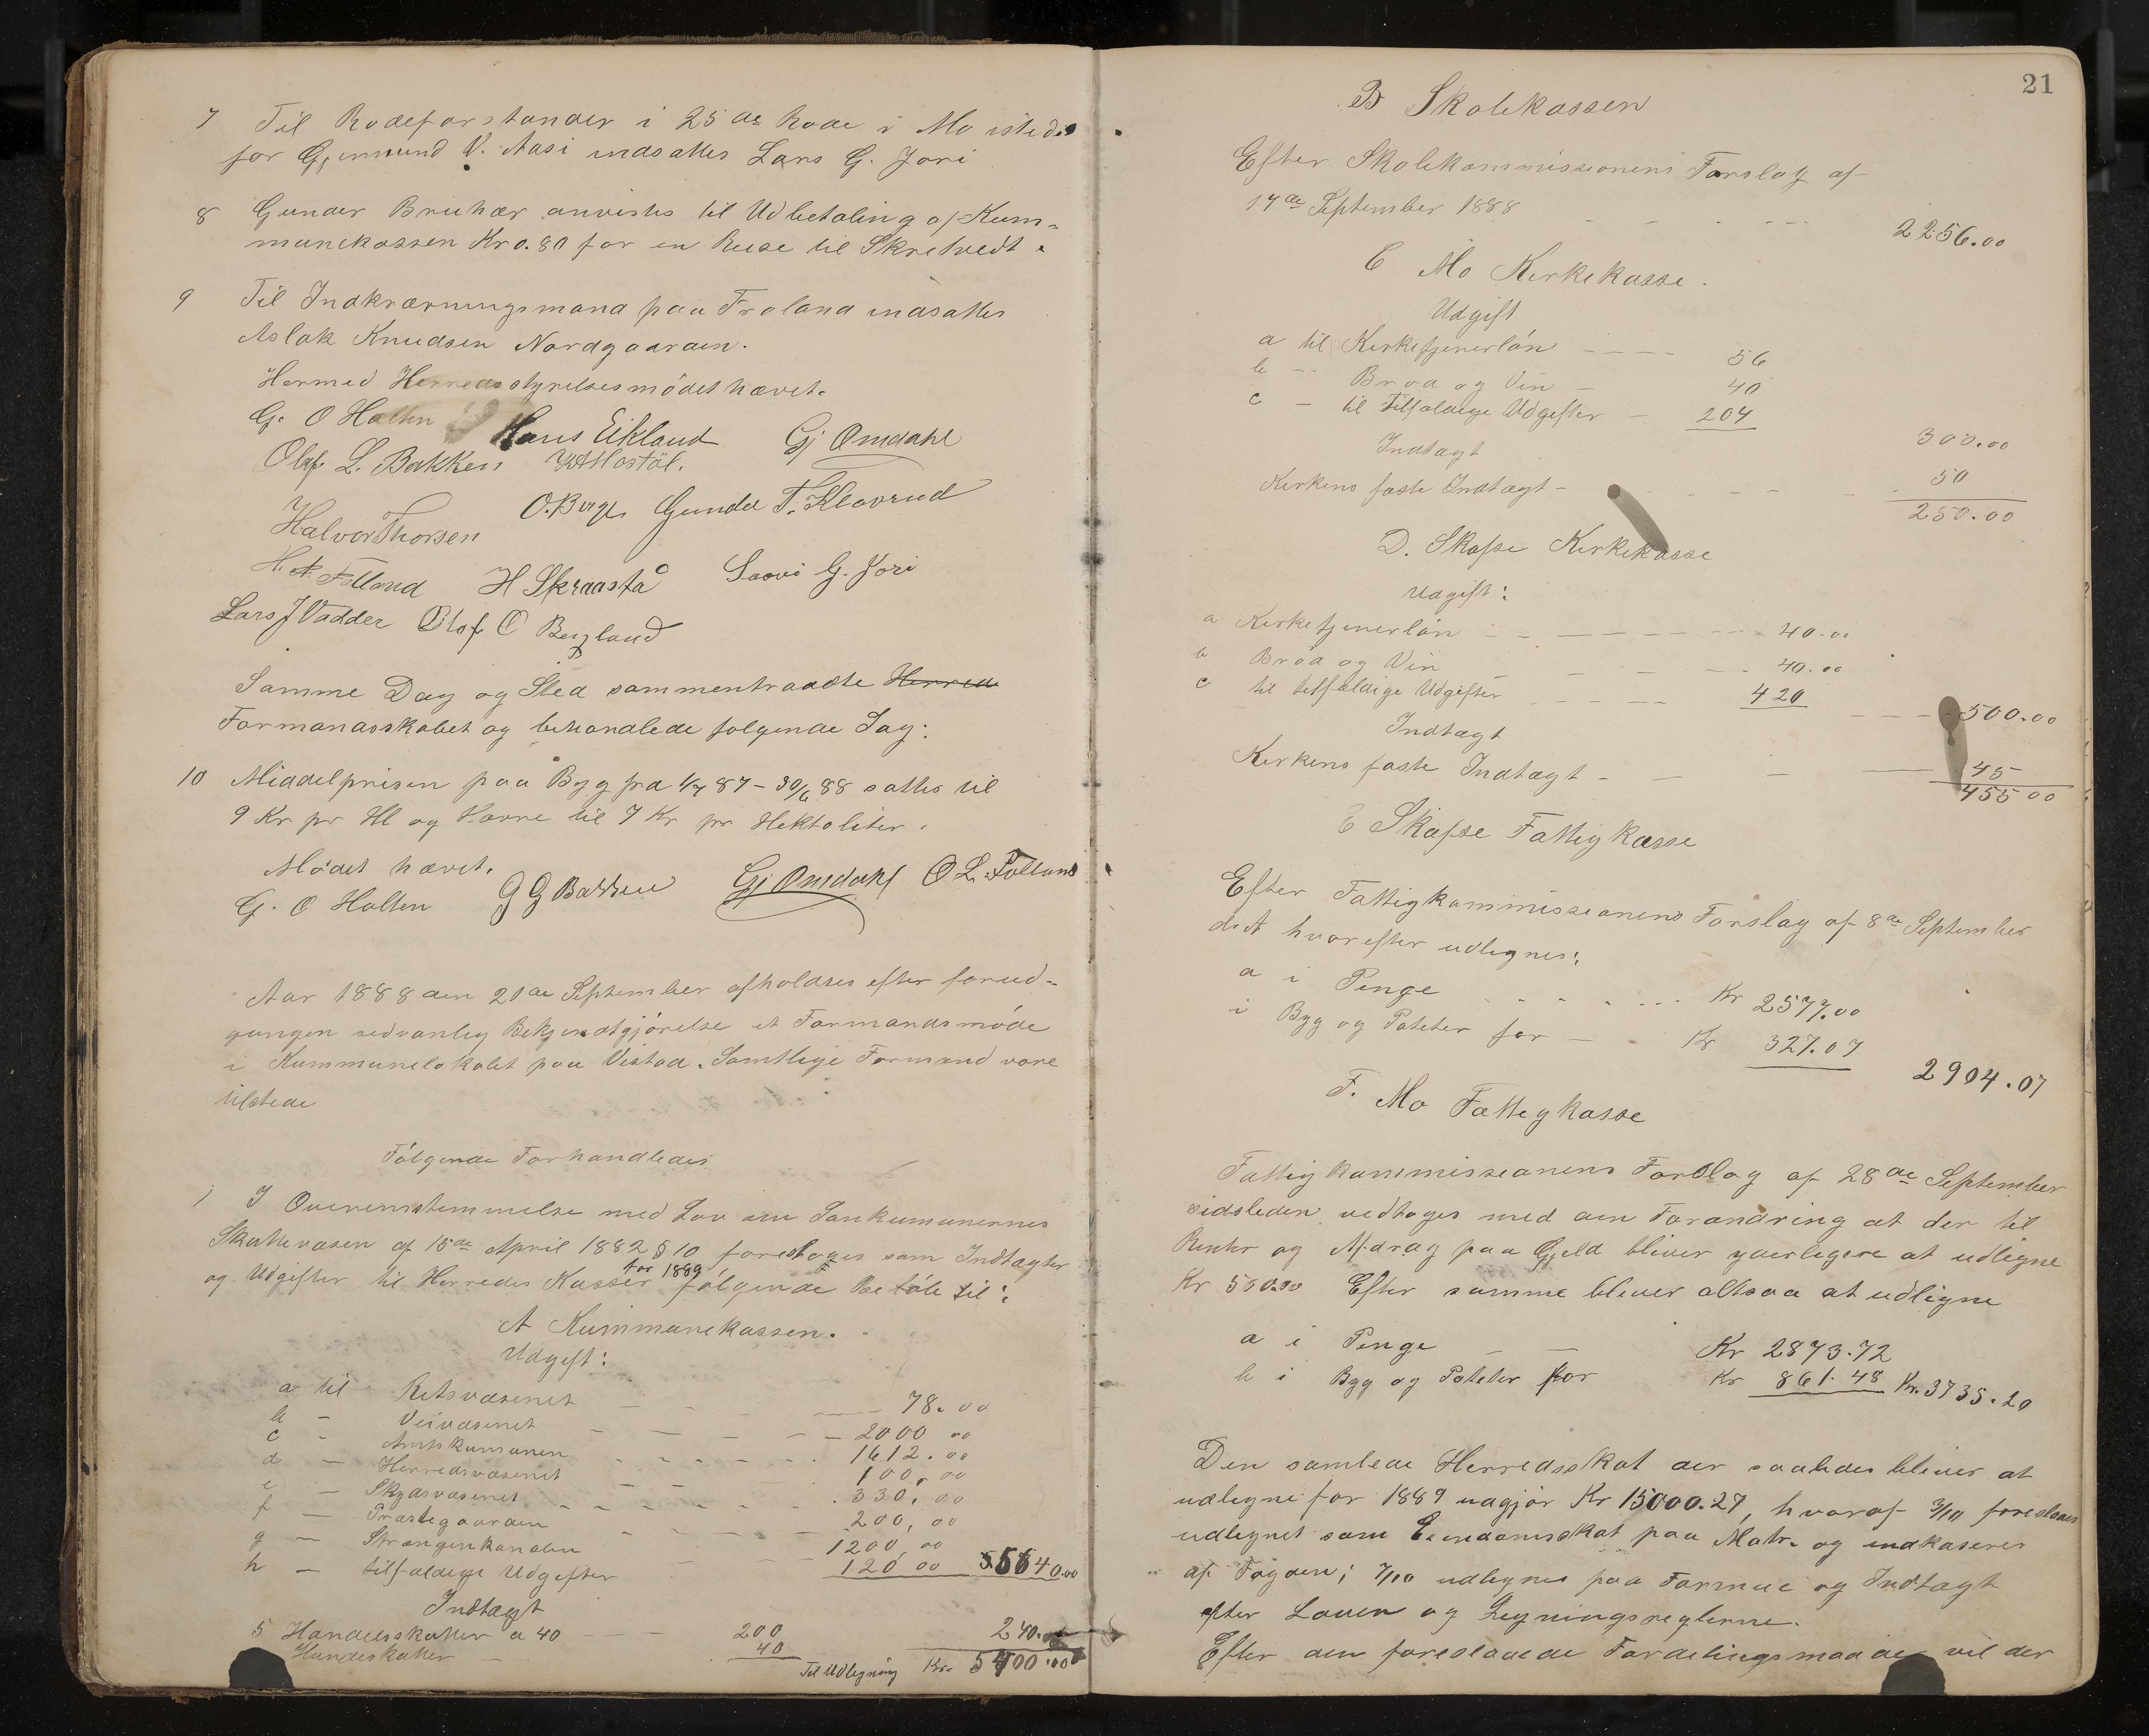 7 Til Rodeforstander i 25de Rode i Mo isteden
for Gjermund V. Aasi indsattes Lars G. Jori
8 Gunder Bruhær anvistes til Udbetaling af Kum-
munekassen Kr 0.80 for en Reise til Skretvedt.
9 Til Indkrævningsmand paa Froland indsattes
Aslak Knudsen Nordgaarden.
Hermed Herredsstyrelsesmödet hævet.
G. O Holten Hans Eikland Gj Omdahl
Olaf L. Bakken
Halvor Thorsen O. Berge Gunder T. Klavrud
H. A. Folland H Skraastå Saavi G. Jori
Lars J Vadder Olof O Bergland
Samme Dag og Sted sammentraadte Herreds
Formandsskabet og behandlede følgende Sag:
10 Middelprisen paa Byg fra 1/7 87 - 30/6 88 sattes til
9 Kr pr Hl og Havre til 7 Kr pr Hektoliter.
Mødet hævet.
G. O Holten G G Bakken Gj Omdahl O L. Folland
Aar 1888 den 21de September afholdtes efter forud-
gangen sedvanlig Bekjendtgjørelse et Formandsmøde
i Kummunelokalet paa Vistad. Samtlige Formænd vare
tilstede
Fölgende Forhandledes
1 I Overensstemmelse med Lov om Lankumunernes
Skattevæsen af 15de April 1882 § 10 foreslaaes som Indtægter
og Udgifter til Herredets Kasser for 1889 følgende Beløb til:
A Kummunekassen.
Udgift:
a til Retsvæsenet 78.00
b - Veivæsenet 2000 00
c - Amtskumunen 1612.00
d - Herredsvæsenet 100,00
e - Skydsvæsenet 330,00
f - Præstegaarden 200,00
g - Strængenkanalen 1200,00
h - tilfældige Udgifter 120 00 5640.00
Indtægt
5 Handelsskatter a 40 200
Hundeskatter 40 240.00
Til Udlegning Kr. 5400.00
21
B Skolekassen
Efter Skolekommissionens Forslag af
17de September 1888 2256.00
C Mo Kirkekasse.
Udgift
a til Kirketjenerlön 56
b -- Brød og Vin 40
c - til Tilfældige Udgifter 204
300.00
Indtægt
Kirkens faste Indtægt 50
250.00
D. Skafse Kirkekasse
Udgift:
a Kirketjenerlön 40.00
b Brød og Vin 40.00
c til tilfældige Udgifter 420
500.00
Indtægt
Kirkens faste Indtægt 45
455 00
E Skafse Fattigkasse
Efter Fattigkommissionens Forslag af 8de September
d.A hvorefter udlignes:
a i Penge Kr 2577.00
i Byg og Poteter for Kr 327.07
2904.07
F. Mo Fattigkasse
Fattigkommissionens Forslag af 28de September
sidsleden vedtoges med den Forandring at der til
Renter og Afdrag paa Gjeld bliver yderligere at udligne
Kr 500.00 Efter samme bliver altsaa at udligne
a i Penge Kr 2873.72
b i Byg og Poteter for Kr 861.48 Kr. 3735.20
Den samlede Herredsskat der saaledes bliver at
udligne for 1889 udgjør Kr 15000.27, hvoraf 3/10 foreslaaes
udlignet som Eiendomsskat paa Matr. og indkaseres
af Fogden; 7/10 udlignes paa Formue og Indtægt
efter Loven og Ligningsreglerne.
Efter den foreslaaede Fordelingsmaade vil der